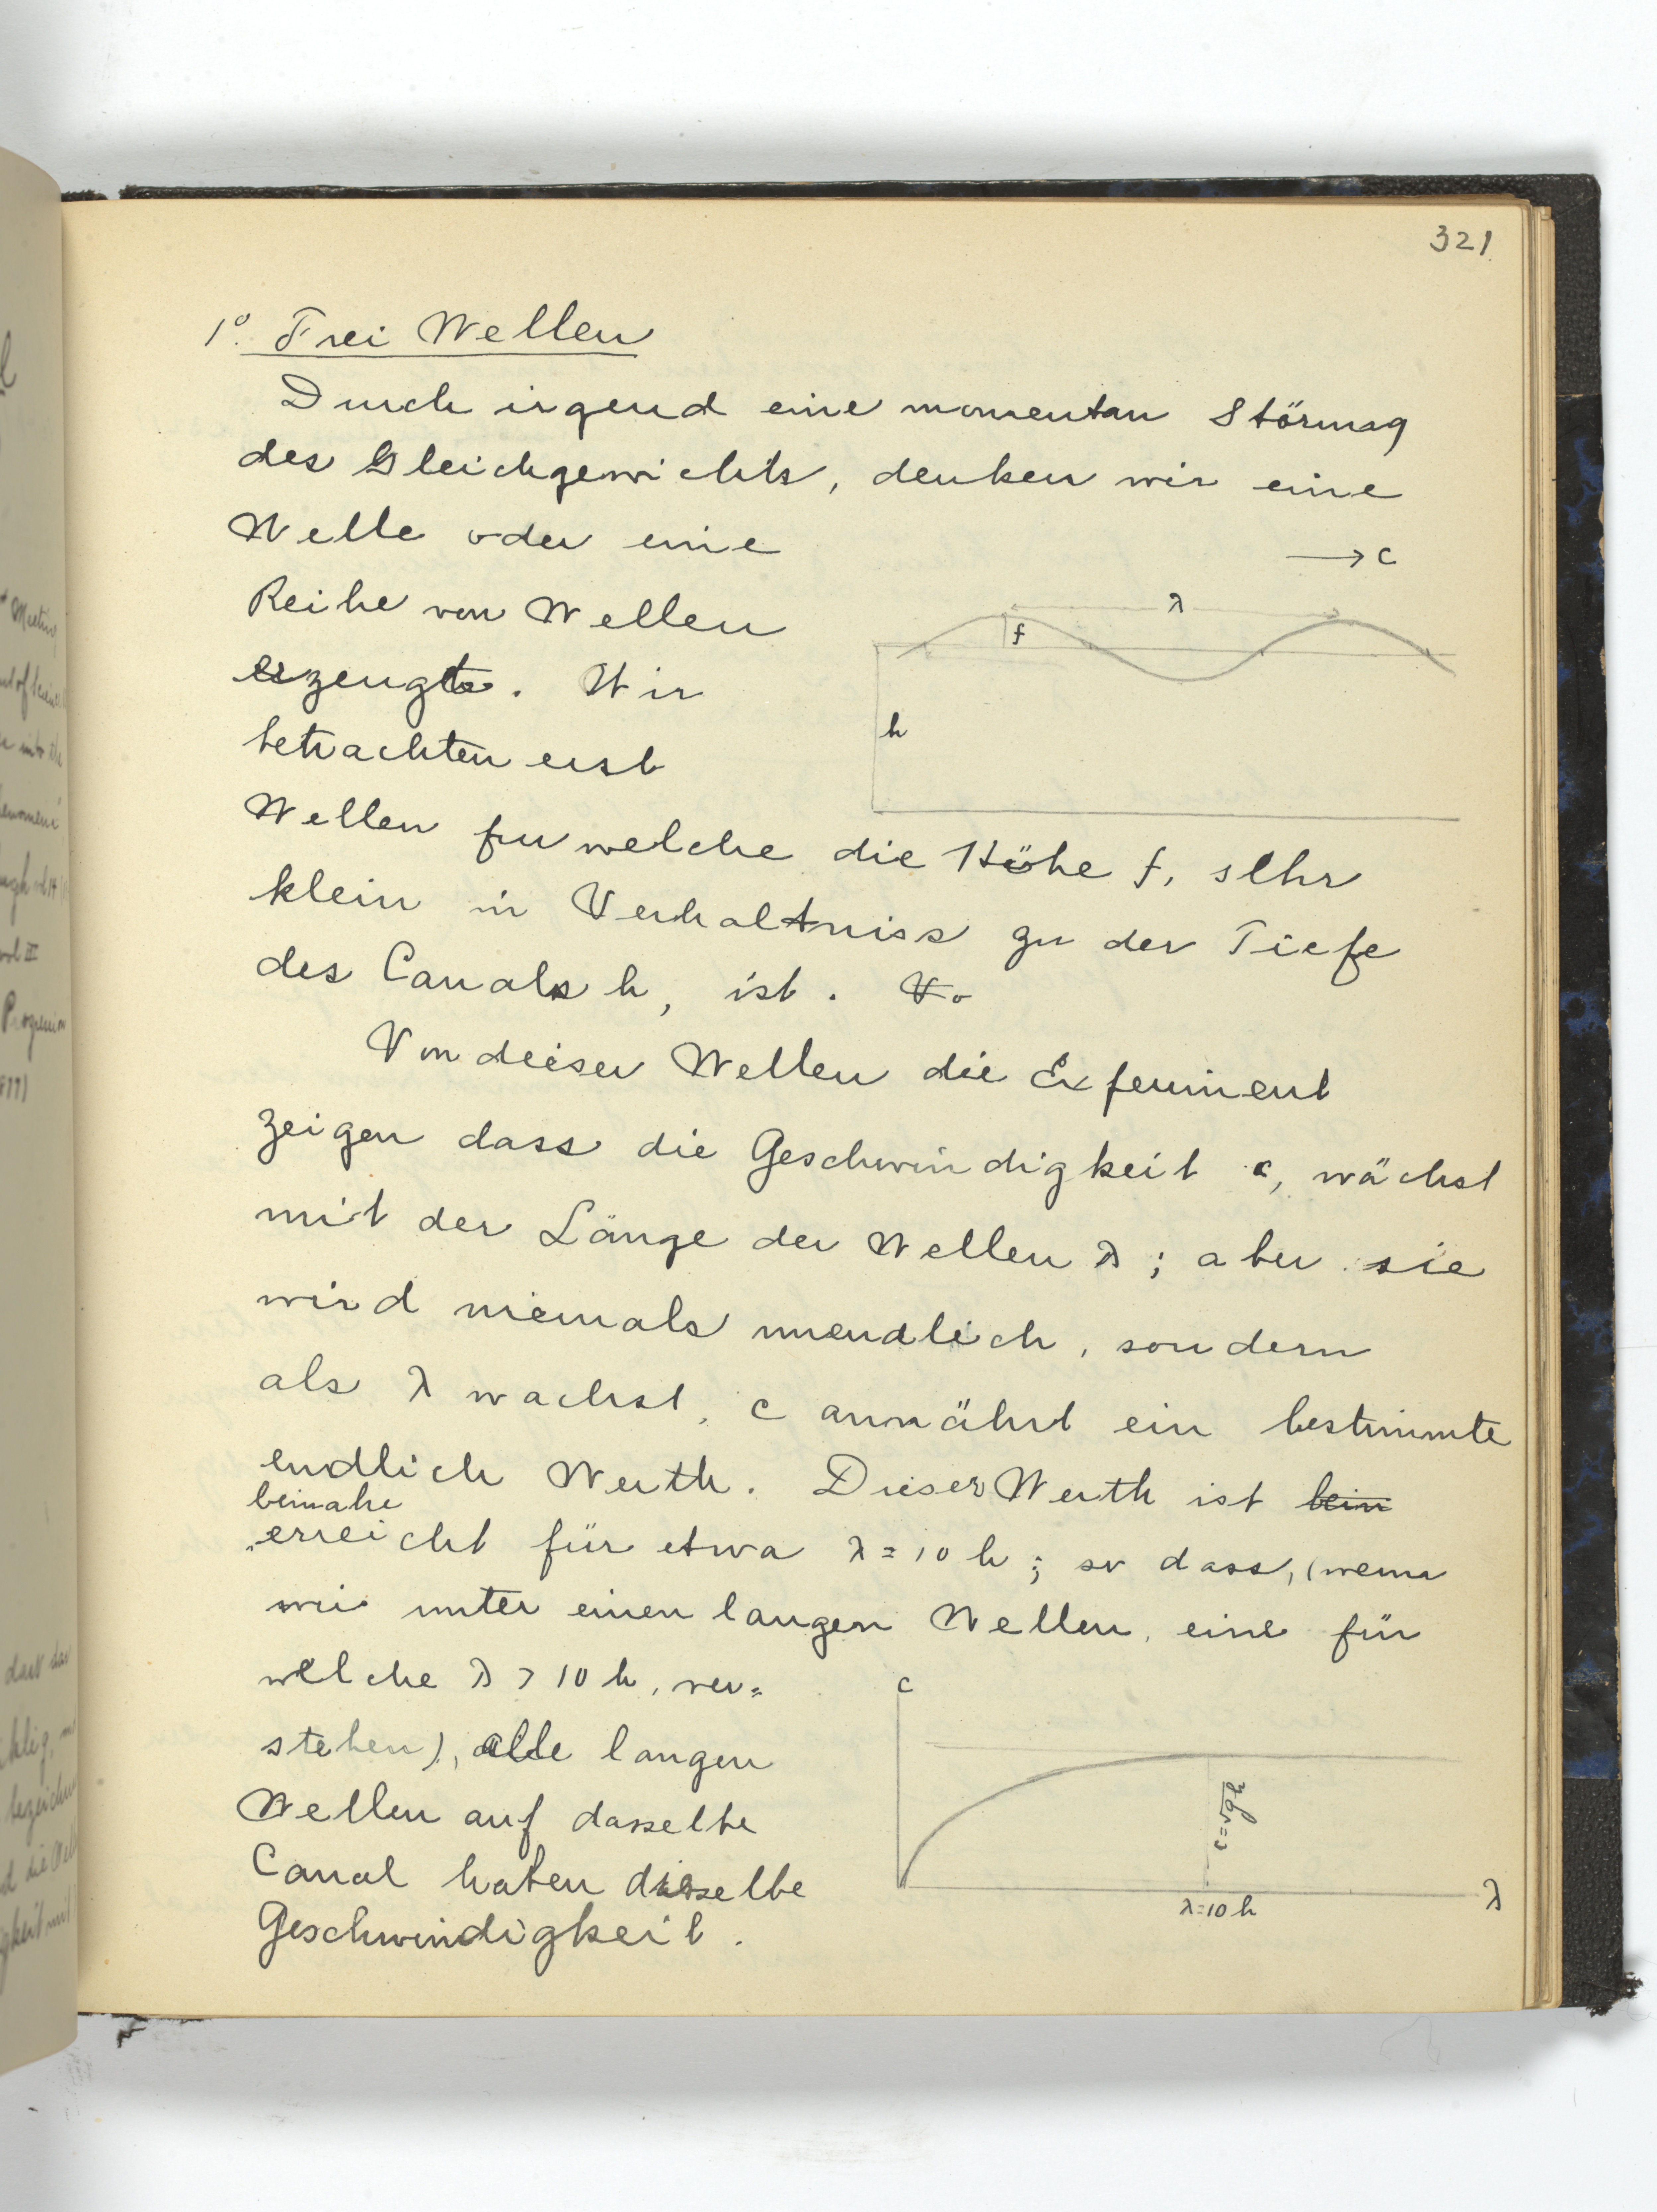 321
1º. Frei Wellen
Durch irgend eine momentan Störung
des Gleichgewichts, denken wir eine
Welle oder eine
Reihe von Wellen
erzeugte. Wir
betrachten erst
Wellen fur welche die Höhe f, sehr
klein in Verhaltniss zu der Tiefe
des Canals h, ist. Vo
Von dieser Wellen die Experiment
zeigen dass die Geschwindigkeit c, wächst
mit der Länge der Wellen λ; aber sie
wird niemals unendlich, sondern
als λ wachst, c annährt ein bestimmte
endlich Werth. Dieser Werth ist bein
beinahe
erreicht für etwa λ = 10 h; so dass, (wenn
wir unter einen langen Wellen, eine für
welche λ > 10 h, ver=
stehen), alle langen
Wellen auf dasselbe
Canal haben dieselbe
Geschwindigkeit.
→ c
λ
f
h
c
c = √gh
λ = 10 h
λ